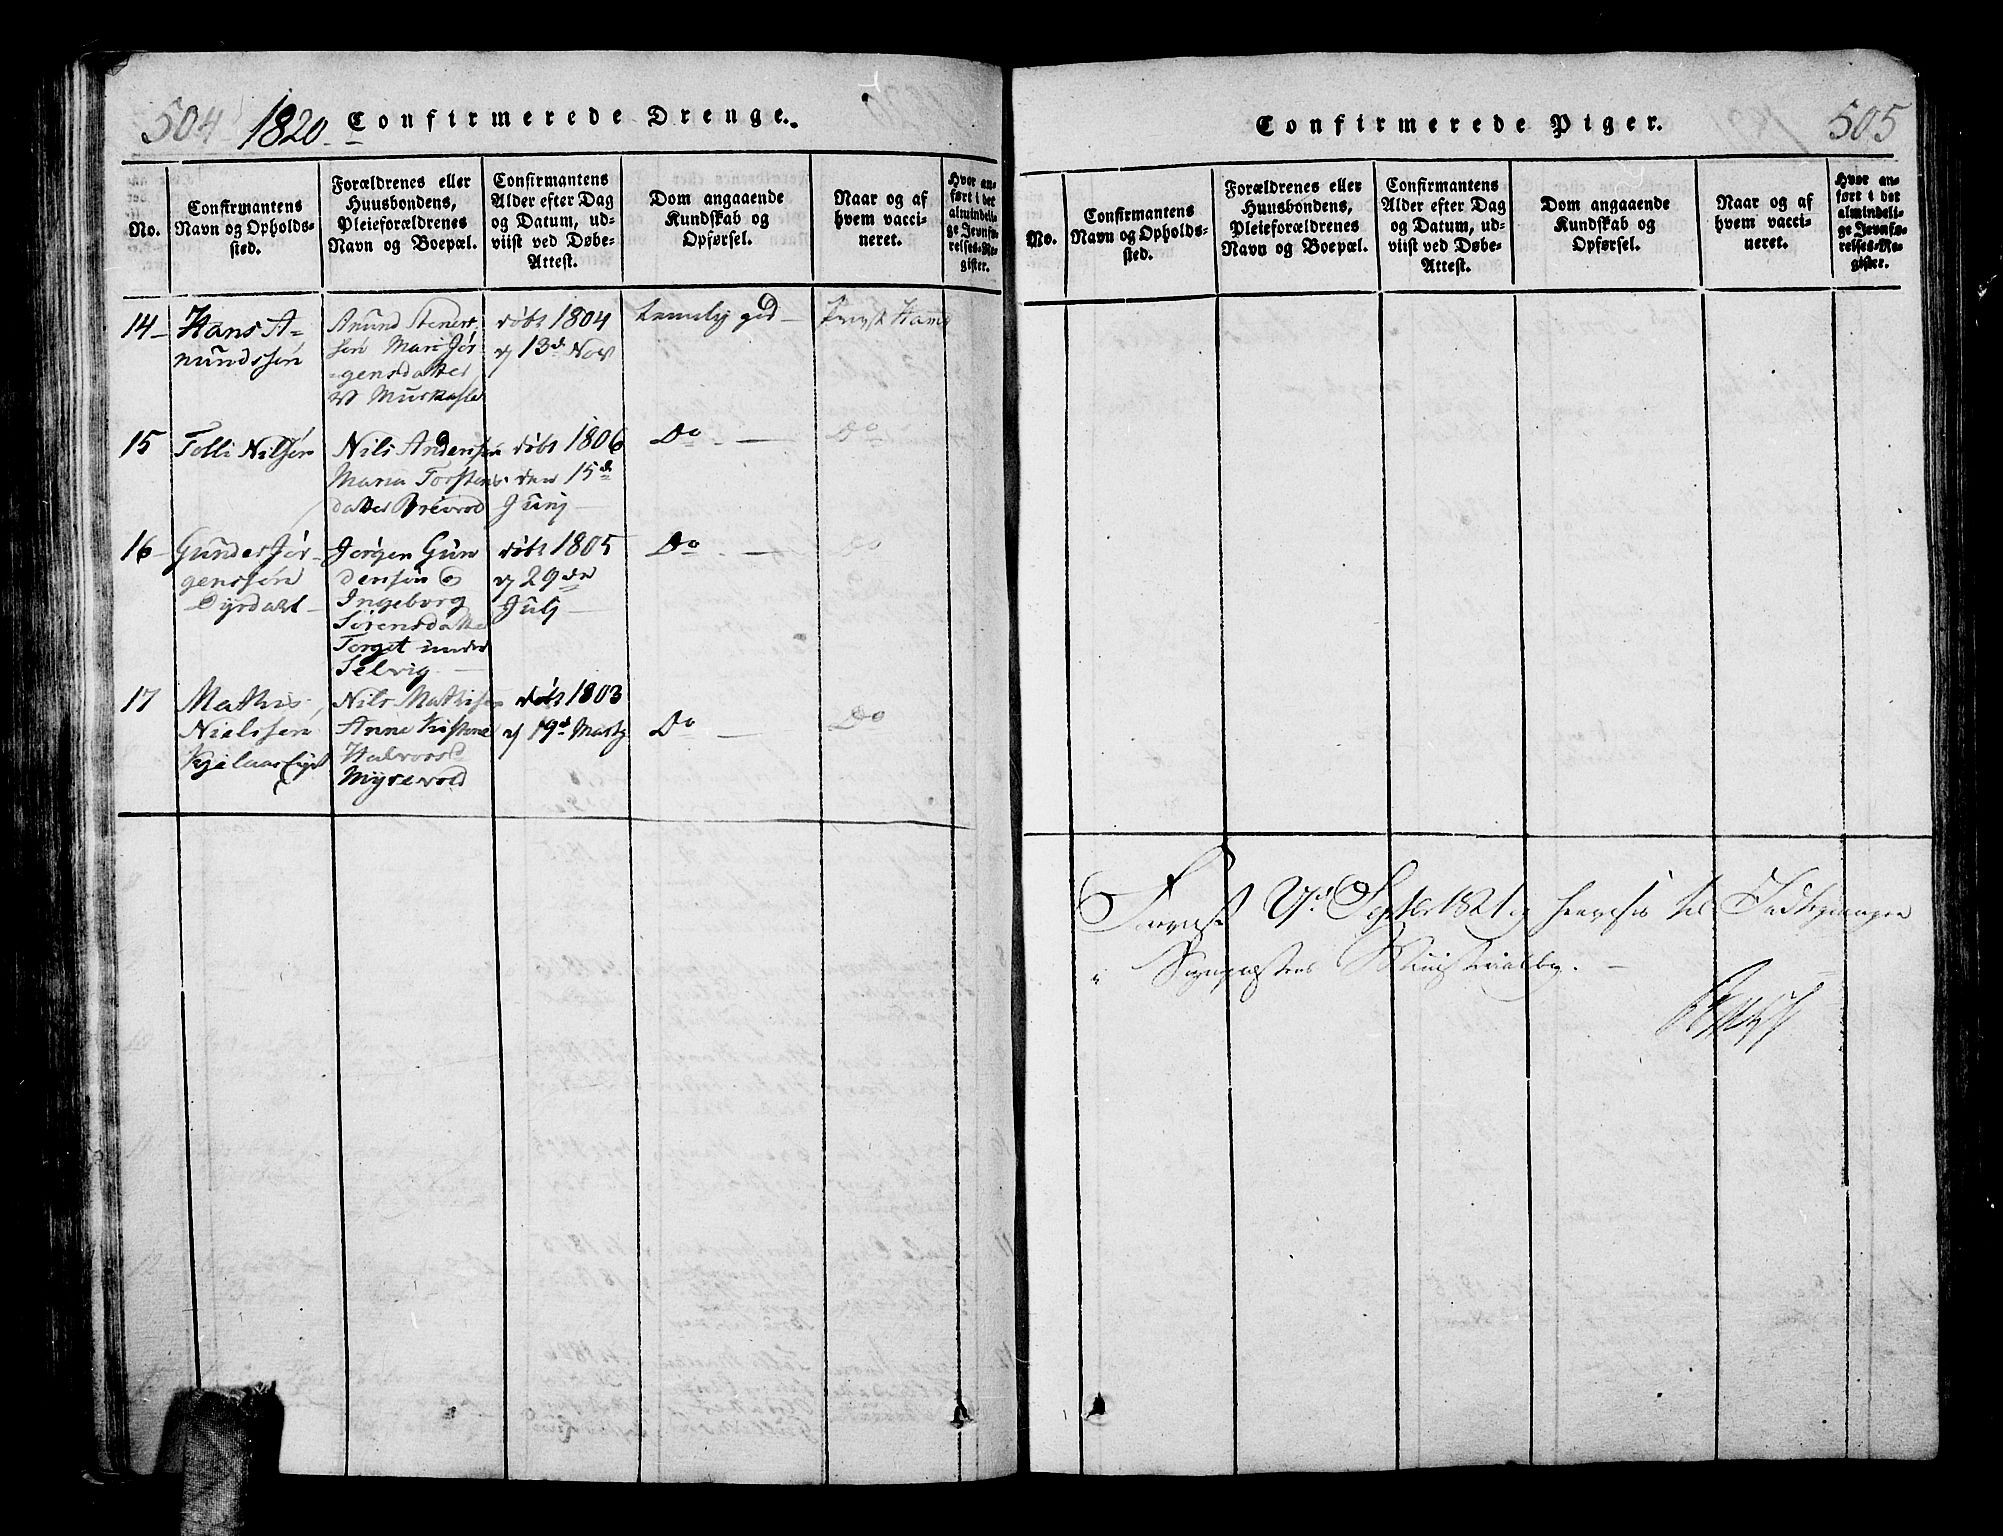 504 1820 Confirmerede Drenge.
No.
Confirmantens
Navn og Opholds-
sted.
Forældrenes eller
Huusbondens,
Pleieforældrenes
Navn og Boepæl.
Confirmantens
Alder efter Dag
og Datum, ud-
viist ved Døbe-
Attest.
Dom angaaende
Kundskab og
Opførsel.
Naar og af
hvem vacci-
neret.
Hvor an-
ført i det
almindeli-
ge Jevnfø-
relses-Re-
gister.
14
Hans A-
mundssøn
Amund Steners
søn Mari Jør-
gensdatter
døbt 1804
13d Nov
temelig god
Provst
15
Tolli Nilsøn
Nils Andersøn
Maria Torstens
datter
døbt 1806
den 15d
Junj
Do
Do
16
Gunder Jør-
genssøn
Dyrdahl
Jørgen Gun
dersøn &
Ingeborg
Sørensdatter
Torget under
Selvig
døbt 1805
29de
Julj
Do
Do
17
Mathis
Nielssøn
Nils Mathisøn
Anne Kistine
Halvorsd
Myrevold
døbt 1803
19d Martz
Do
Do
Confirmerede Piger. 505
No.
Confirmantens
Navn og Opholds-
sted.
Forældrenes eller
Huusbondens,
Pleieforældrenes
Navn og Boepæl.
Confirmantens
Alder efter Dag
og Datum, ud-
viist ved Døbe-
Attest.
Dom angaaende
Kundskab og
Opførsel.
Naar og af
hvem vacci-
neret.
Hvor an-
ført i det
almindeli-
ge Jevnfø-
relses-Re-
gister.
Septbr 1821 og henvises til
i Ministerialbog.